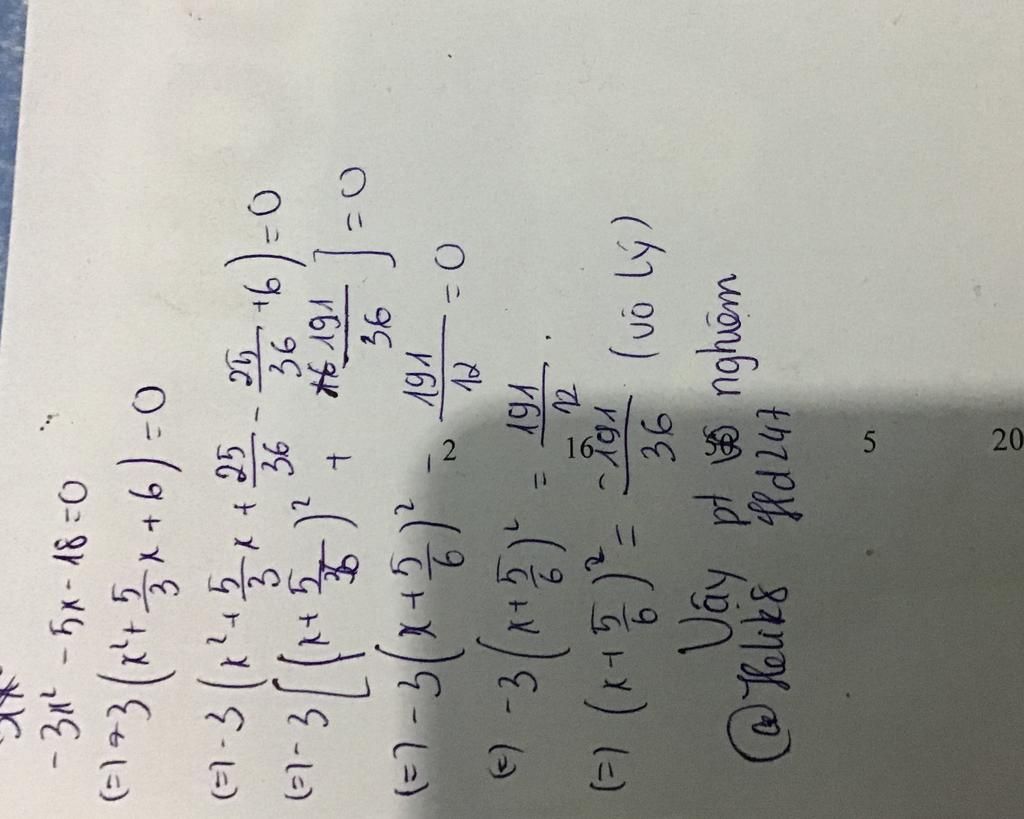 -3x² - 5x - 18 = 0
(=) -3(x² + 5/3 x + 6) = 0
(=) -3(x² + 5/3 x + 25/36 - 25/36 + 6) = 0
(=) -3[(x + 5/6)² + 191/36] = 0
(=) -3(x + 5/6)² - 191/12 = 0
(=) -3(x + 5/6)² = 191/12
(=) (x + 5/6)² = -191/36 (vô lý)
Vậy pt vô nghiệm
@Helik8 Hd247
2 16 5 20